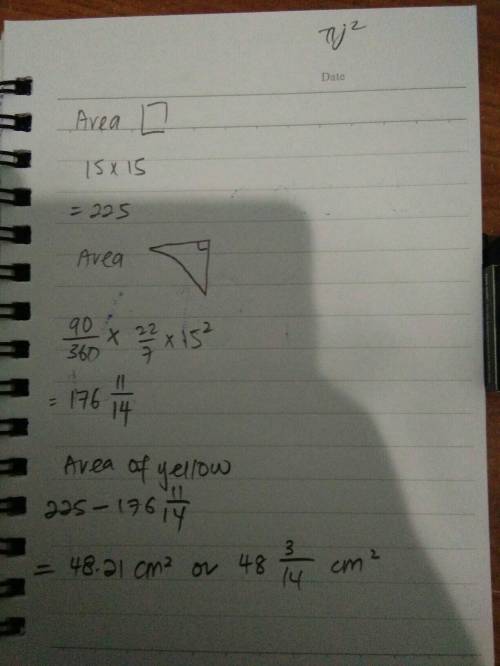 πj²
Date
Area
15 × 15
= 225
Area
90/360 × 22/7 × 15²
= 176 11/14
Area of yellow
225 − 176 11/14
= 48.21 cm² or 48 3/14 cm²